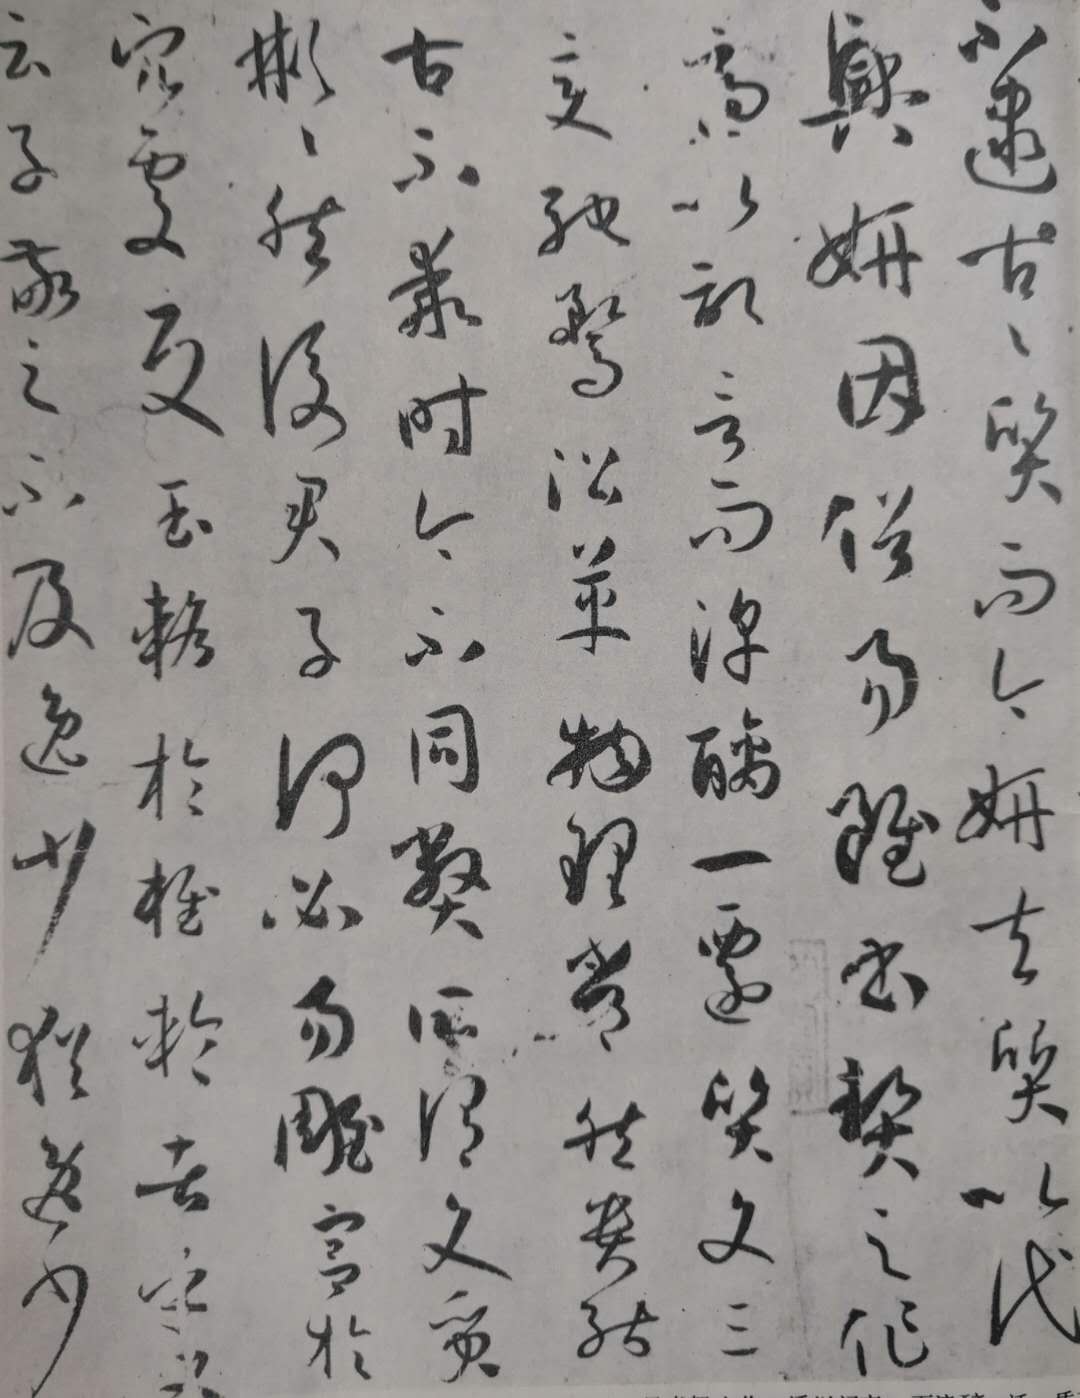 不逮古古質而今妍夫質以代
興妍因俗易雖書契之作
適以記言而淳醨一遷質文三
變馳騖沿革物理常然貴能
古不乖時今不同弊所謂文質
彬彬然後君子何必易雕宮於
穴處反玉輅於椎輪者乎
云子敬之不及逸少猶逸少